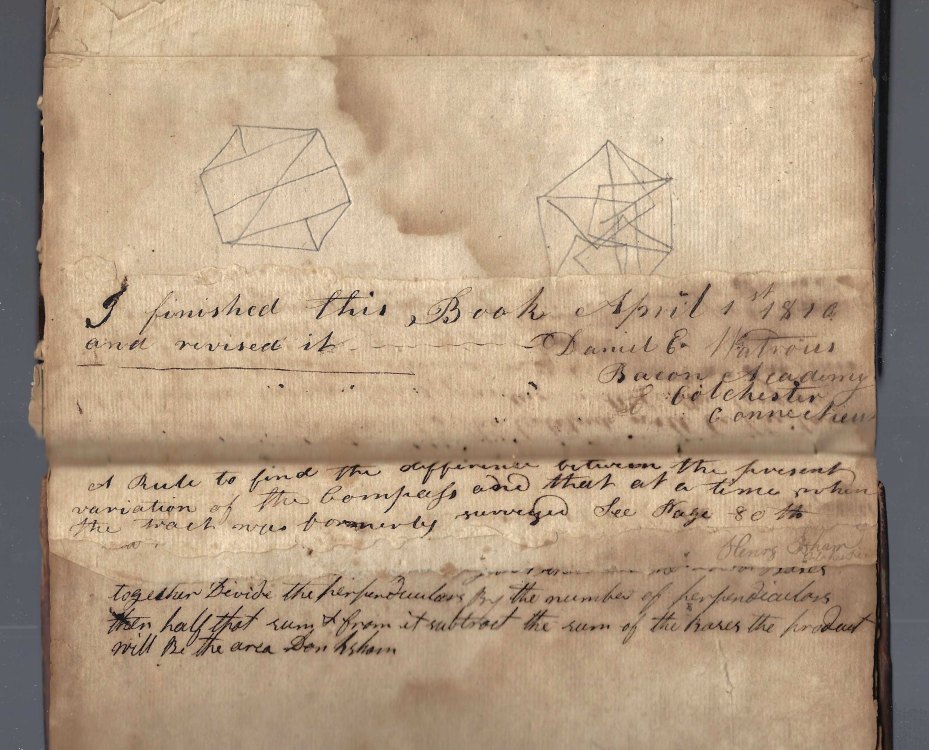 I finished this Book April 1st 1810
and revised it Daniel E. Watrous
Bacon Academy
Colchester
Connecticut
A Rule to find the difference between the present
variation of the Compass and that at a time when
the tract was formerly surveyed See Page 80th
Henry Isham
together Divide the perpendiculars By the number of perpendiculars
then half that sum & from it subtract the sum of the Bases the product
will Be the area Don Isham